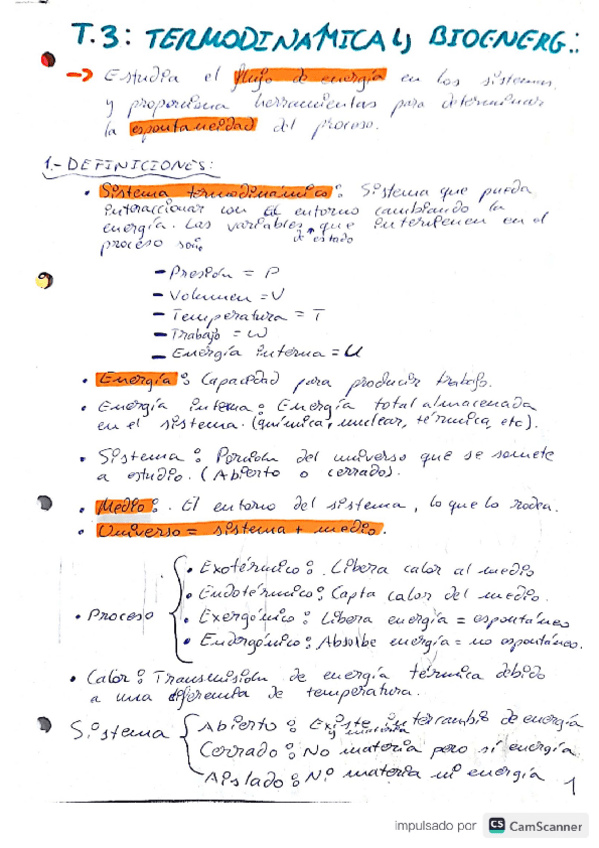 T.3: TERMODINAMICA Y BIOENERG.:
→ Estudia el flujo de energía en los sistemas
y proporciona herramientas para determinar
la espontaneidad del proceso.
1.- DEFINICIONES:
• Sistema termodinámico: Sistema que pueda
interaccionar con el entorno cambiando la
energía. Las variables de estado que intervienen en el
proceso son:
- Presión = P
- Volumen = V
- Temperatura = T
- Trabajo = W
- Energía interna = U
• Energía: Capacidad para producir trabajo.
• Energía interna: Energía total almacenada
en el sistema. (química, nuclear, térmica, etc).
• Sistema: Porción del universo que se somete
a estudio. (Abierto o cerrado).
• Medio: El entorno del sistema, lo que lo rodea.
• Universo = sistema + medio.
• Proceso
• Exotérmico: Libera calor al medio
• Endotérmico: Capta calor del medio.
• Exergónico: Libera energía = espontáneo
• Endergónico: Absorbe energía = no espontáneo.
• Calor: Transmisión de energía térmica debido
a una diferencia de temperatura.
Sistema
Abierto: Existe intercambio de energía
y materia
Cerrado: No materia pero sí energía
Aislado: Ni materia ni energía
1
impulsado por CS CamScanner